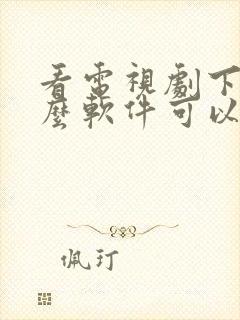 看電視劇下
麼軟件可以
佩玎